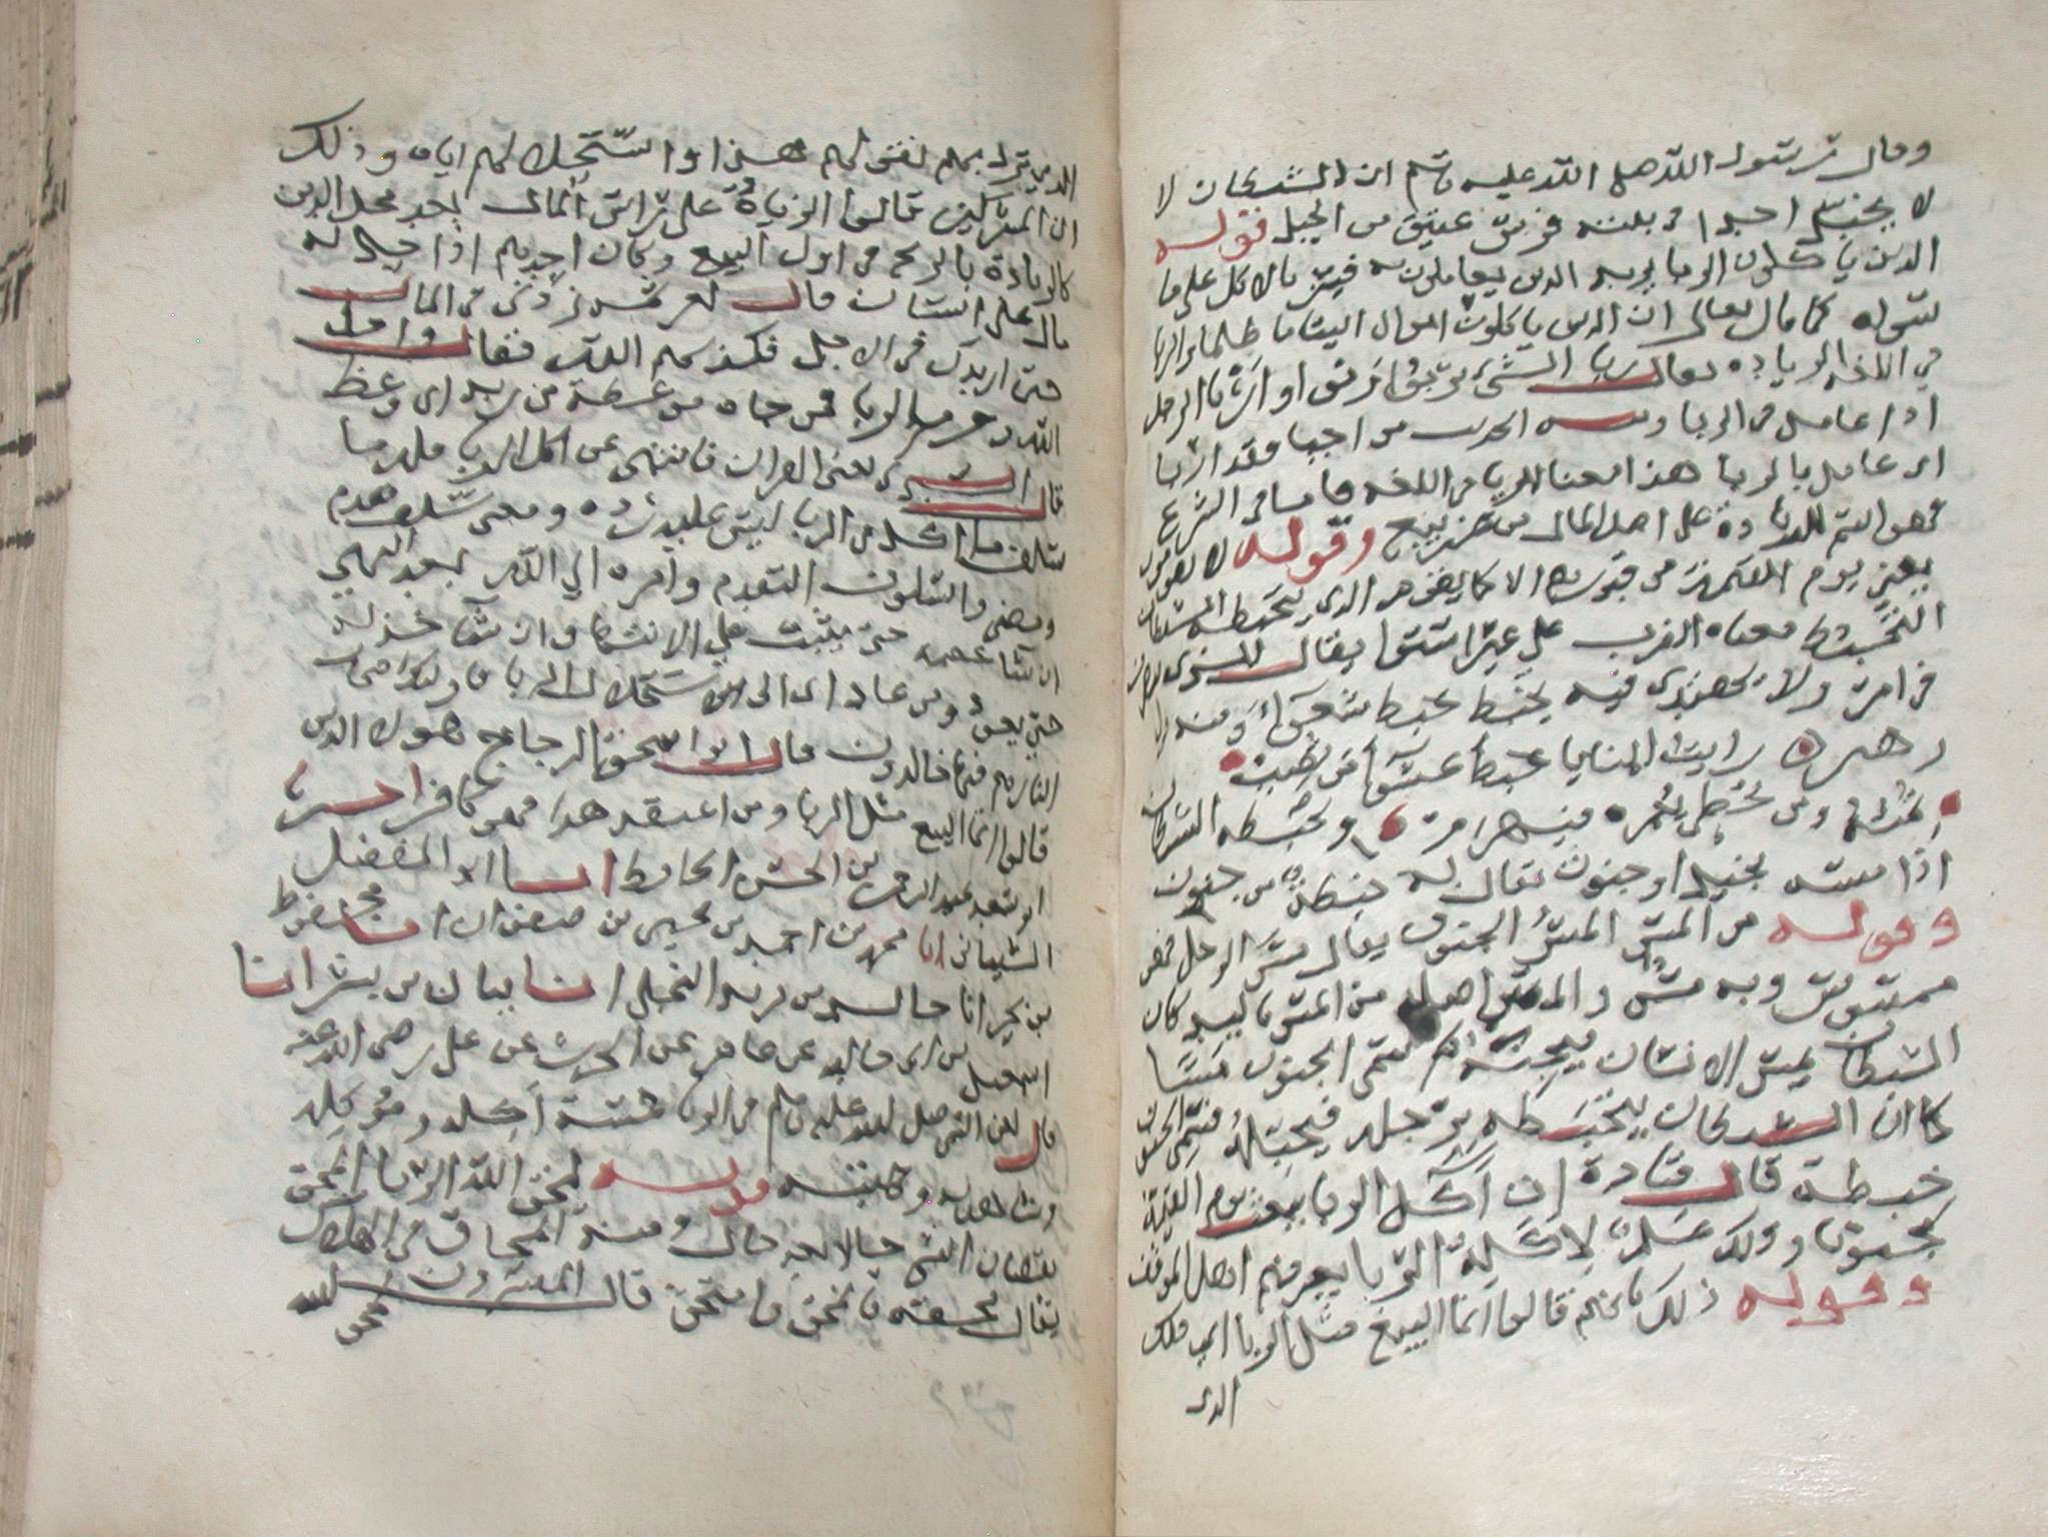 وقال رسول الله صلى الله عليه وسلم ان الشيطان لا
لا يخبل احدا في بيته فرس عتيق من الخيل فقوله
الذين ياكلون الربا يريد الذين يعاملون به فيه بالاكل على ما
سواه كما قال تعالى ان الذين ياكلون اموال اليتاما ظلما والربا
في اللغه الزياده يقال ربا الشيء يربوا اربى الرجل
اذا عامل في الربا ومنه الحديث من اجبا فقد اربا
اى عامل بالربا هذا معنا الربا في اللغه فاما في الشرع
فهو اسم للزيادة على اصل المال من غير بيع وقوله لا يقومون
يعني يوم القيمة من قبورهم الا كما يقوم الذي يتخبطه الشيطان
التخبط معناه الضرب على غير استوا يقال للذى
في امر ولا يهتدى فيه يخبط خبط عشواء ومنه
زهير رايت المنايا خبط عشوا من تصب
تمته ومن تخطى يعمر فيهرم وتخبطه الشيطان
اذا مسه بخبل او جنون يقال به خبطة من جنون
وقوله من المس المس الجنون يقال مس الرجل فهو
ممسوس وبه مس والمس اصله من المس باليد كان
الشيطان يمس الانسان فيجنه ثم سمى الجنون مسا
كما ان الشيطان يتخبطه برجله فيخبله فسمى الجنون
خبطة قال قتادة ان آكل الربا يبعث يوم القيمة
مجنونا وذلك علم لاكلة الربا يعرفهم اهل الموقف
وقوله ذلك بانهم قالوا انما البيع مثل الربا اي ذلك
الذى
الذي نزل بهم لقولهم هذا واستحلالهم اياه وذلك
ان المشركين قالوا الزيادة على راس المال بعد محل الدين
كالزيادة بالربح في اول البيع وكان احدهم اذا حل له
مال على انسان قال لغريمه زدنى في المال
حتى ازيدك في الاجل فكذبهم الله فقال واحل
الله وحرم الربا فمن جاه موعظة من ربه اى وعظ
قال السدى يعنى القران فانتهى عن اكل الربا فله ما
سلف ما اكل من الربا ليس عليه رده ومعنى سلف تقدم
ومضى والسلوف التقدم وامره الي الله بعد النهي
ان شا عصمه حتى يثبت على الانتها وان شا خذله
حتى يعود ومن عاد اى الى استحلال الربا فاولئك اصحاب
النار هم فيها خالدون قال ابو اسحق الزجاج هولا الذين
قالوا انما البيع مثل الربا ومن اعتقد هذا فهو كافر اخبرنا
ابو سعد عبد الرحمن بن الحسن الحافظ انبا ابو المفضل
الشيبانى انا محمد بن احمد بن يحيى بن صفوان انا محفوظ
بن بحير انا خالد بن يزيد البجلى انا بيان بن بشر انا
اسمعيل بن ابى خالد عن عامر عن الحرث عن على رضى الله عنه
قال لعن النبي صلى الله عليه وسلم في الربا ستة آكله وموكله
وشاهديه وكاتبه قوله يمحق الله الربا المحق
نقصان الشي حالا بعد حال ومنه المحاق في الهلال
يقال محقه فانمحق وامتحق قال المفسرون
يمحق